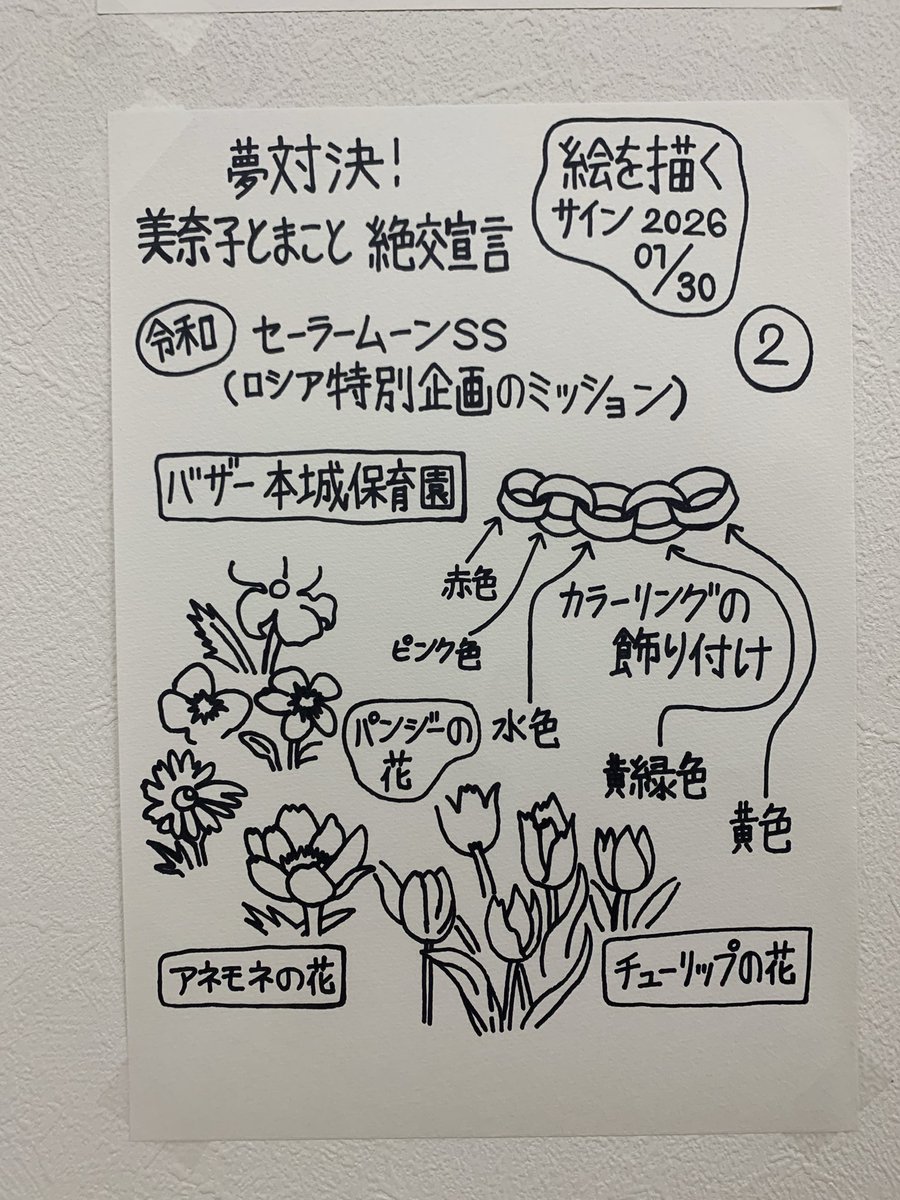 夢対決!
美奈子とまこと 絶交宣言
絵を描く
サイン 2026
07/30
令和 セーラームーンSS
(ロシア特別企画のミッション)
2
バザー 本城保育園
赤色
ピンク色
カラーリングの
飾り付け
パンジーの
花
水色
黄緑色
黄色
アネモネの花
チューリップの花